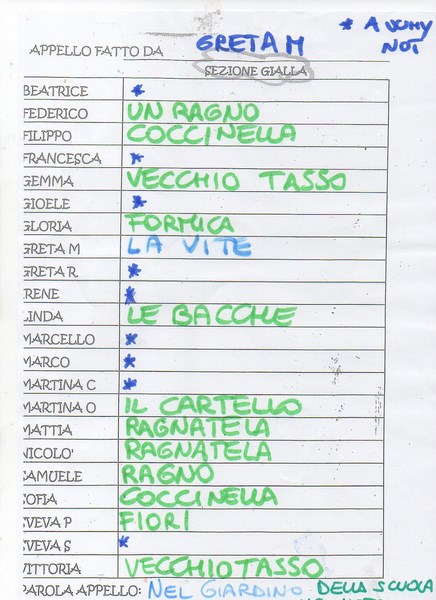 * A JUMY
APPELLO FATTO DA GRETA M NOT
SEZIONE GIALLA
BEATRICE *
FEDERICO UN RAGNO
FILIPPO COCCINELLA
FRANCESCA *
GEMMA VECCHIO TASSO
GIOELE *
GLORIA FORMICA
GRETA M LA VITE
GRETA R *
IRENE *
LINDA LE BACCHE
MARCELLO *
MARCO *
MARTINA C *
MARTINA O IL CARTELLO
MATTIA RAGNATELA
NICOLO' RAGNATELA
SAMUELE RAGNO
SOFIA COCCINELLA
SVEVA P FIORI
SVEVA S *
VITTORIA VECCHIO TASSO
PAROLA APPELLO: NEL GIARDINO DELLA SCUOLA